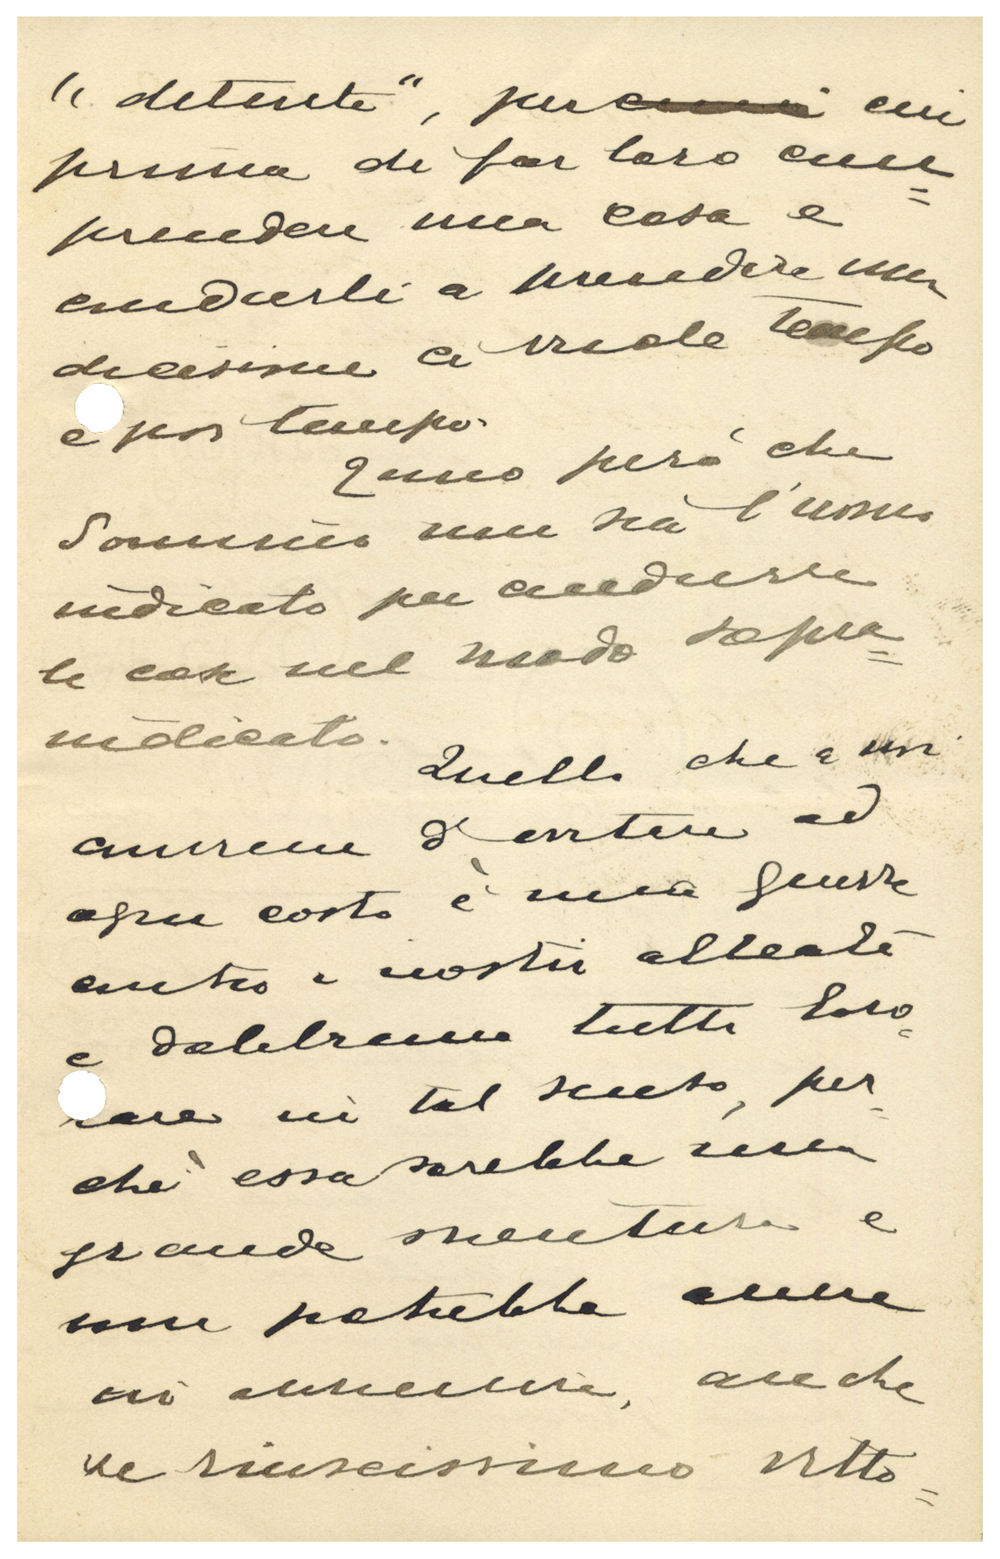 "detente", per cui
prima di far loro com=
prendere una cosa e
condurli a prendere una
decisione ci vuole tempo
e poi tempo.
Temo però che
Sonnino non sia l'uomo
indicato per condurre
le cose nel modo sopra=
indicato.
Quello che a noi
conviene d'evitare ad
ogni costo è una guerra
contro i nostri alleati
e dobbiamo tutti lavo-
rare in tal senso, per-
chè essa sarebbe una
grande sventura e
non potrebbe avere
in avvenire, anche
se riuscissimo vitto=